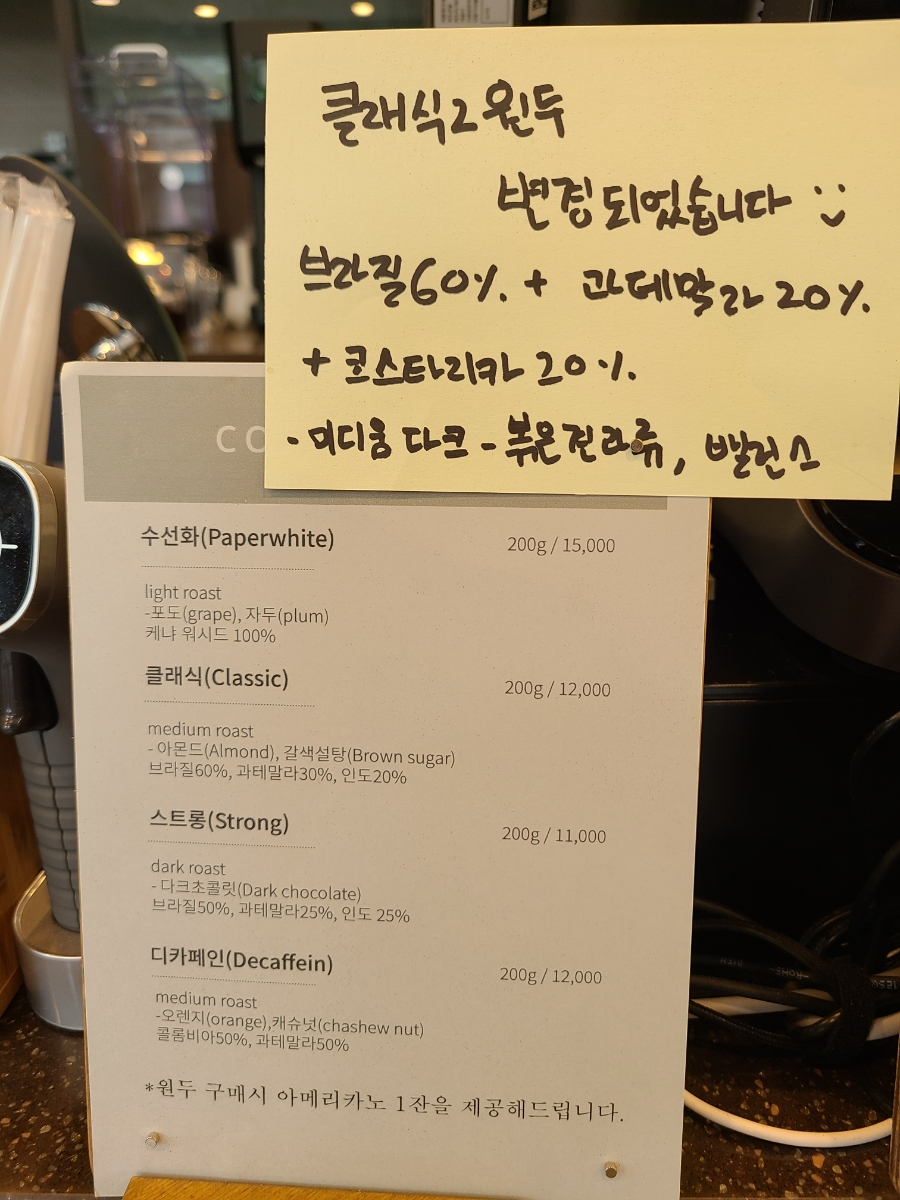 클래식2 원두
변경되었습니다 :)
브라질60%. + 과데말라 20%.
+ 코스타리카 20%.
- 미디움 다크 - 볶은견과류, 밸런스
CO
수선화(Paperwhite) 200g / 15,000
light roast
-포도(grape), 자두(plum)
케냐 워시드 100%
클래식(Classic) 200g / 12,000
medium roast
- 아몬드(Almond), 갈색설탕(Brown sugar)
브라질60%, 과테말라30%, 인도20%
스트롱(Strong) 200g / 11,000
dark roast
- 다크초콜릿(Dark chocolate)
브라질50%, 과테말라25%, 인도 25%
디카페인(Decaffein) 200g / 12,000
medium roast
-오렌지(orange),캐슈넛(chashew nut)
콜롬비아50%, 과테말라50%
*원두 구매시 아메리카노 1잔을 제공해드립니다.